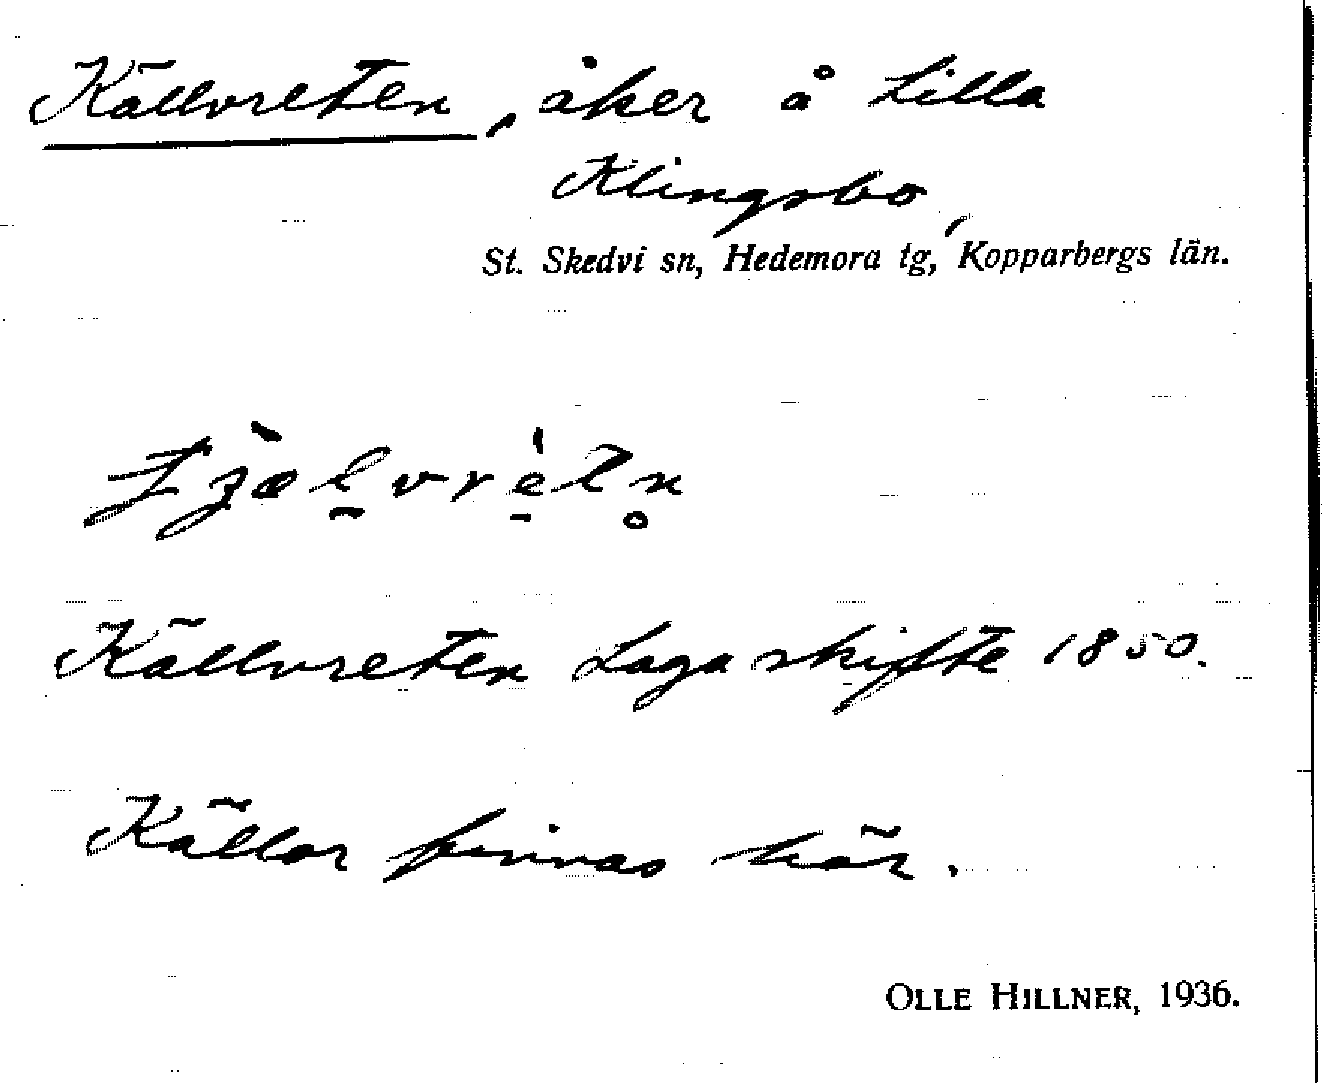 Källvreten, åker å Lilla
Klingsbo,
St. Skedvi sn, Hedemora tg, Kopparbergs län.
Källvreten Laga skifte 1850.
Källor finnas här.
OLLE HILLNER, 1936.